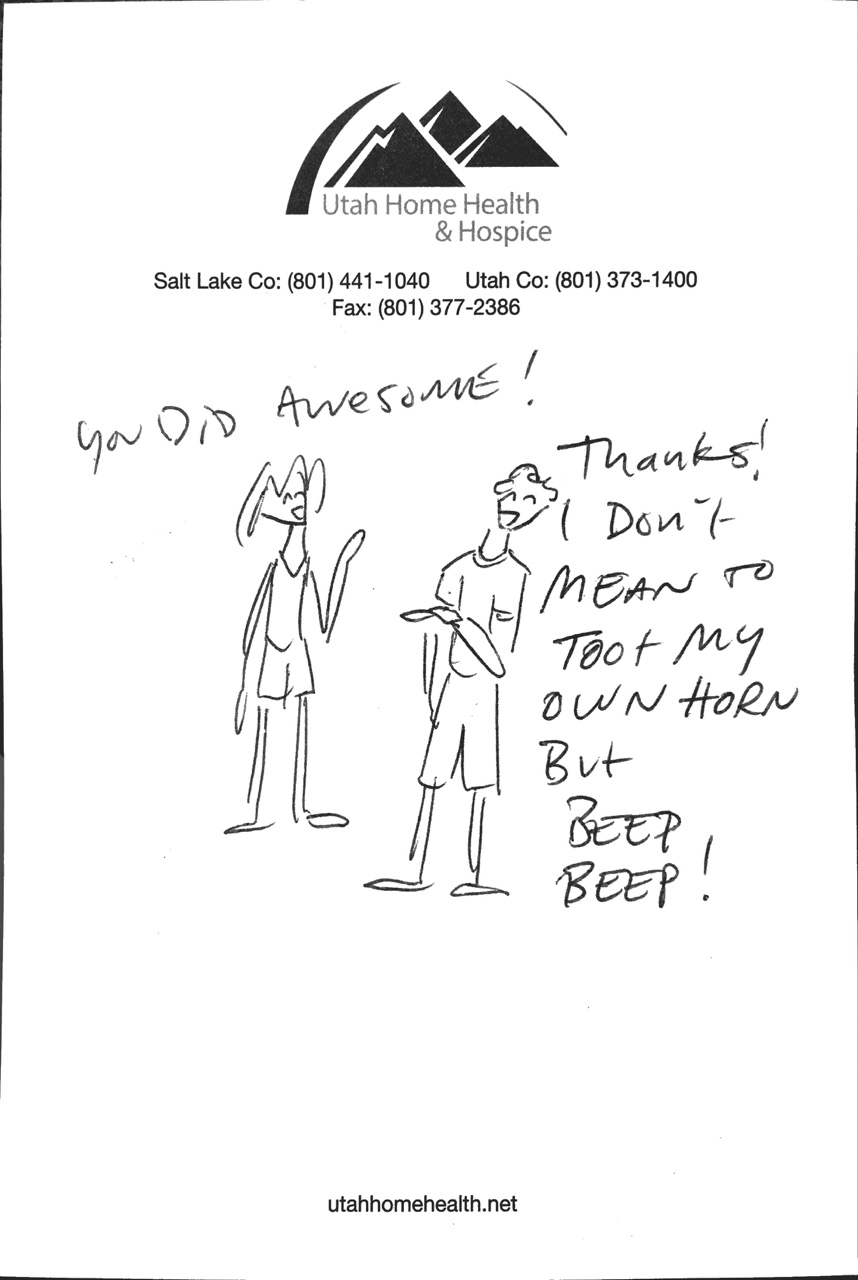 Utah Home Health
& Hospice
Salt Lake Co: (801) 441-1040 Utah Co: (801) 373-1400
Fax: (801) 377-2386
you DiD AwesoME!
Thanks!
I Don't
MEAN TO
Toot My
OWN HORN
But
BEEP
BEEP!
utahhomehealth.net